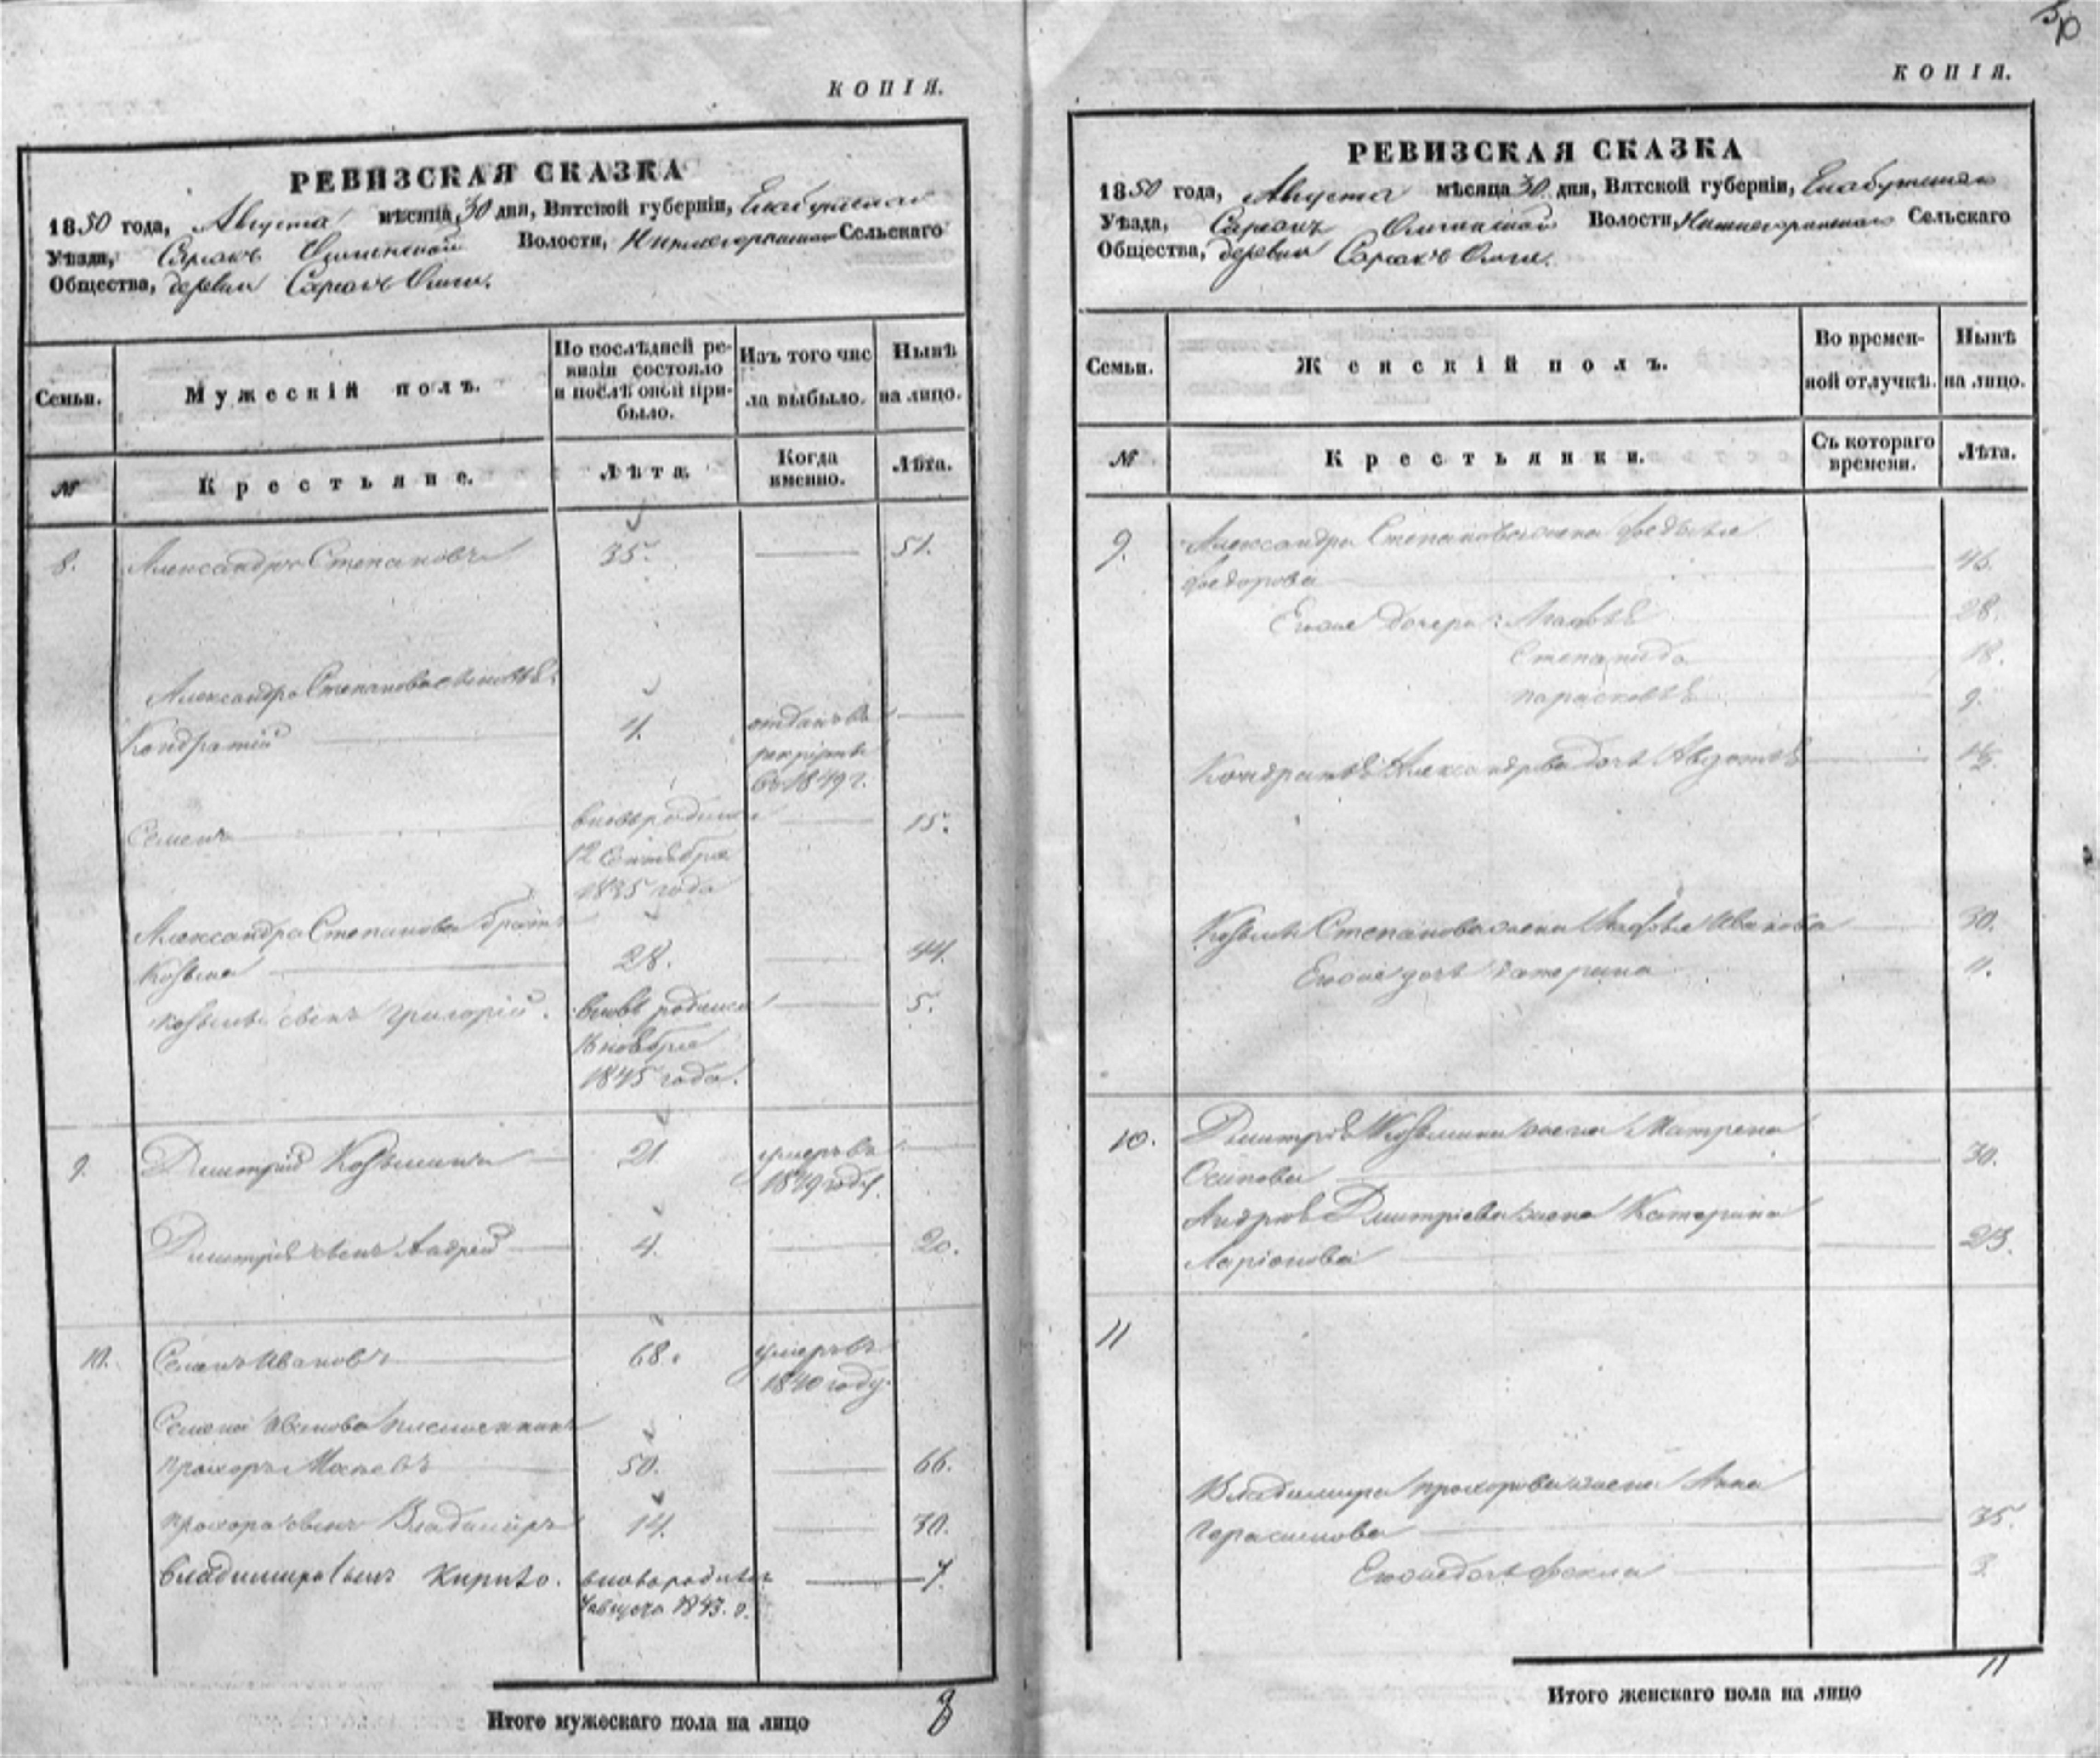 КОПІЯ.
РЕВИЗСКАЯ СКАЗКА
1850 года, Августа мѣсяца 30 дня, Вятской губерніи, Елабужскаго
Уѣзда, Волости, Сельскаго
Общества, деревни
Семьи.
Мужескій полъ.
По послѣдней ре-
визіи состояло
и послѣ оной при-
было.
Изъ того чис
ла выбыло.
Нынѣ
на лицо.
№
Крестьяне.
Лѣта.
Когда
именно.
Лѣта.
8. Александръ Степановъ 35. 51.
Александра Степанова сыновья:
Кондратій 4. отданъ въ
рекруты
въ 1849 г.
Семенъ вновь родился 15.
12 Сентября
1835 года
Александра Степанова братъ
Козьма 28. 44.
Козьмы сынъ Григорій. вновь родился 5.
ноября
1845 года.
9. Дмитрій Козьминъ 21. умеръ въ
1849 году.
Дмитрія сынъ Андрей 4. 20.
10. Семенъ Ивановъ 68. умеръ въ
1840 году.
Семена Иванова племянникъ
Прохоръ 50. 66.
Прохора сынъ Владимиръ 14. 30.
Владимира сынъ вновь родился 7.
августа 1843. г.
Итого мужескаго пола на лицо 8
КОПІЯ.
РЕВИЗСКАЯ СКАЗКА
1850 года, Августа мѣсяца 30 дня, Вятской губерніи, Елабужскаго
Уѣзда, Волости, Сельскаго
Общества, деревни
Семьи.
Женскій полъ.
Во времен-
ной отлучкѣ.
Нынѣ
на лицо.
№
Крестьянки.
Съ котораго
времени.
Лѣта.
9. Александра Степанова жена
Федорова 46.
Его же дочери: Агафья 28.
Степанида 18.
Парасковья 9.
Кондратья Александрова дочь Авдотья
Козьмы Степанова жена Агафья Иванова 30.
Его же дочь Катерина 11.
10. Дмитрія Козьмина жена Матрена
Осипова 30.
Андрея Дмитріева жена Катерина
Ларіонова 23.
11
Владимира Прохорова жена Анна
Герасимова 35.
Его же дочь Фекла 3.
Итого женскаго пола на лицо 11